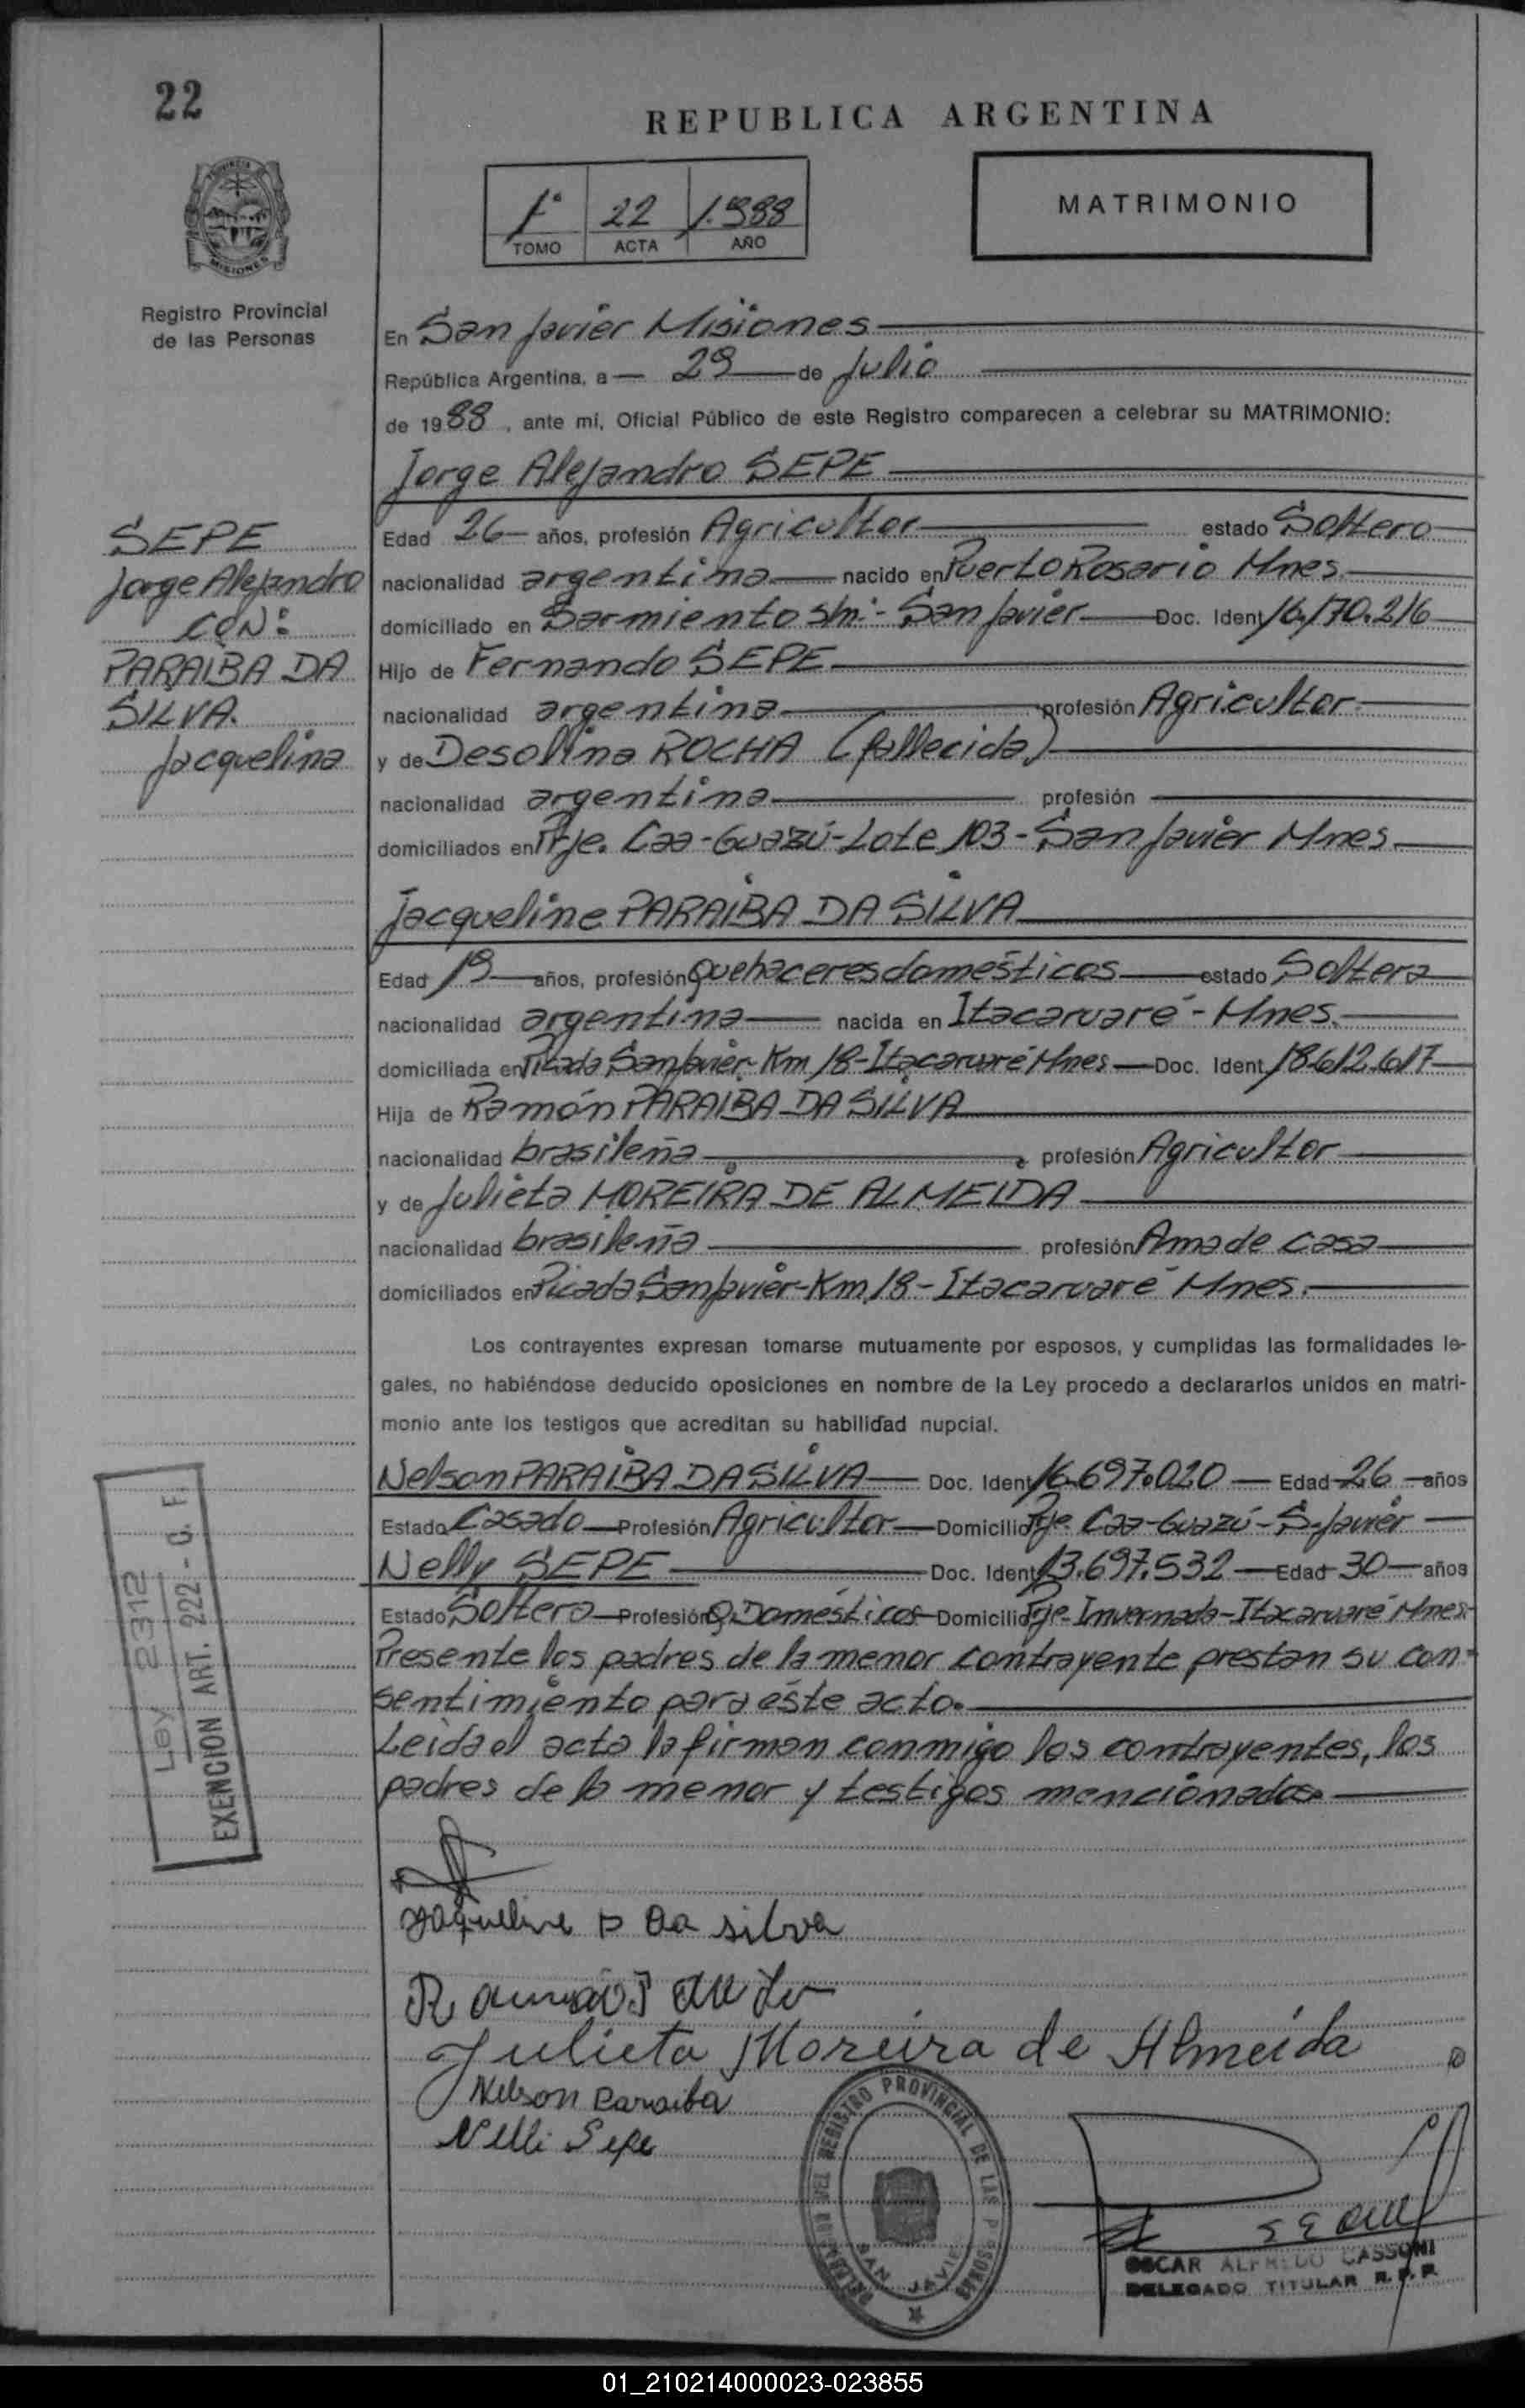 22
REPUBLICA ARGENTINA
PROVINCIA DE
MISIONES
Registro Provincial
de las Personas
1° 22 1.988
TOMO ACTA AÑO
MATRIMONIO
En San Javier Misiones
República Argentina, a 29 de Julio
de 1988, ante mi, Oficial Público de este Registro comparecen a celebrar su MATRIMONIO:
Jorge Alejandro SEPE
Edad 26 años, profesión Agricultor estado Soltero
nacionalidad argentina nacido en Puerto Rosario Mnes.
domiciliado en Sarmiento s/n:- San Javier Doc. Ident 16.170.216
Hijo de Fernando SEPE
nacionalidad argentina profesión Agricultor
y de Desolina ROCHA (fallecida)
nacionalidad argentina profesión
domiciliados en Pje. Caa-Guazú-Lote 103-San Javier Mnes.
SEPE
Jorge Alejandro
CON:
PARAIBA DA
SILVA.
Jacquelina
Jacqueline PARAIBA DA SILVA
Edad 19 años, profesión Quehaceres domésticos estado Soltera
nacionalidad argentina nacida en Itacaruaré - Mnes.
domiciliada en Picada San Javier-Km 18-Itacaruaré Mnes Doc. Ident 18.612.617
Hija de Ramón PARAIBA DA SILVA
nacionalidad brasileña profesión Agricultor
y de Julieta MOREIRA DE ALMEIDA
nacionalidad brasileña profesión Ama de casa
domiciliados en Picada San Javier-Km.18-Itacaruaré Mnes.
Los contrayentes expresan tomarse mutuamente por esposos, y cumplidas las formalidades le-
gales, no habiéndose deducido oposiciones en nombre de la Ley procedo a declararlos unidos en matri-
monio ante los testigos que acreditan su habilidad nupcial.
Nelson PARAIBA DA SILVA Doc. Ident 16.697.020 Edad 26 años
Estado Casado Profesión Agricultor Domicilio Pje. Caa-Guazú-S.Javier
Nelly SEPE Doc. Ident 13.697.532 Edad 30 años
Estado Soltera Profesión Q.Domésticos Domicilio Pje-Invernada-Itacaruaré Mnes-
Presente los padres de la menor contrayente prestan su con-
sentimiento para éste acto.
Leida el acta la firman conmigo los contrayentes, los
padres de la menor y testigos mencionados.
Ley 2312
EXENCION ART. 222 - C. F.
Jaqueline P Da silva
Julieta Moreira de Almeida
Nelson Paraiba
Nelli Sepe
DEL REGISTRO PROVINCIAL DE LAS PERSONAS
SAN JAVIER
OSCAR ALFREDO CASSONI
DELEGADO TITULAR R.P.P.
01_210214000023-023855